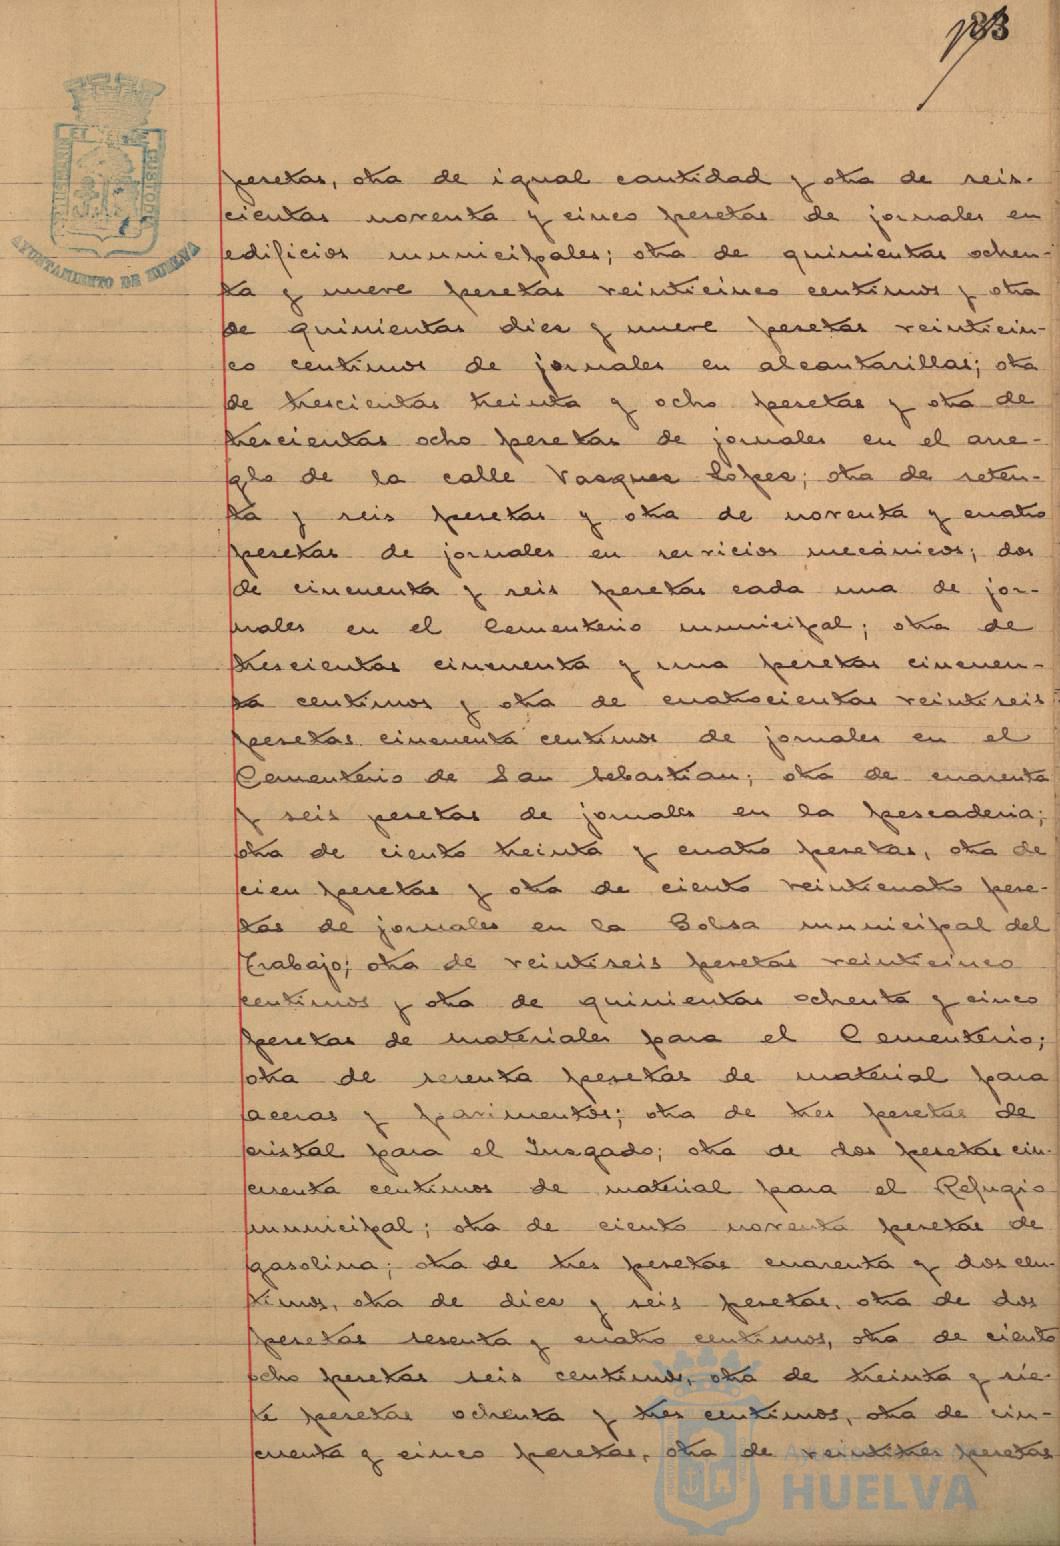 183
AYUNTAMIENTO DE HUELVA
pesetas, otra de igual cantidad y otra de seis-
cientas noventa y cinco pesetas de jornales en
edificios municipales; otra de quinientas ochen-
ta y nueve pesetas veinticinco centimos y otra
de quinientas diez y nueve pesetas veinticin-
co centimos de jornales en alcantarillas; otra
de trescientas treinta y ocho pesetas y otra de
trescientas ocho pesetas de jornales en el arre-
glo de la calle Vasques López; otra de seten-
ta y seis pesetas y otra de noventa y cuatro
pesetas de jornales en servicios mecánicos; dos
de cincuenta y seis pesetas cada una de jor-
nales en el Cementerio municipal; otra de
trescientas cincuenta y una pesetas cincuen-
ta centimos y otra de cuatrocientas veintiseis
pesetas cincuenta centimos de jornales en el
Cementerio de San Sebastian; otra de cuarenta
y seis pesetas de jornales en la pescaderia;
otra de ciento treinta y cuatro pesetas, otra de
cien pesetas y otra de ciento veinticuatro pese-
tas de jornales en la Bolsa municipal del
Trabajo; otra de veintiseis pesetas veinticinco
centimos y otra de quinientas ochenta y cinco
pesetas de materiales para el Cementerio;
otra de sesenta pesetas de material para
aceras y pavimentos; otra de tres pesetas de
cristal para el Juzgado; otra de dos pesetas cin-
cuenta centimos de material para el Refugio
municipal; otra de ciento noventa pesetas de
gasolina; otra de tres pesetas cuarenta y dos cen-
timos, otra de diez y seis pesetas, otra de dos
pesetas sesenta y cuatro centimos, otra de ciento
ocho pesetas seis centimos, otra de treinta y sie-
te pesetas ochenta y tres centimos, otra de cin-
cuenta y cinco pesetas, otra de veintitres pesetas
HUELVA